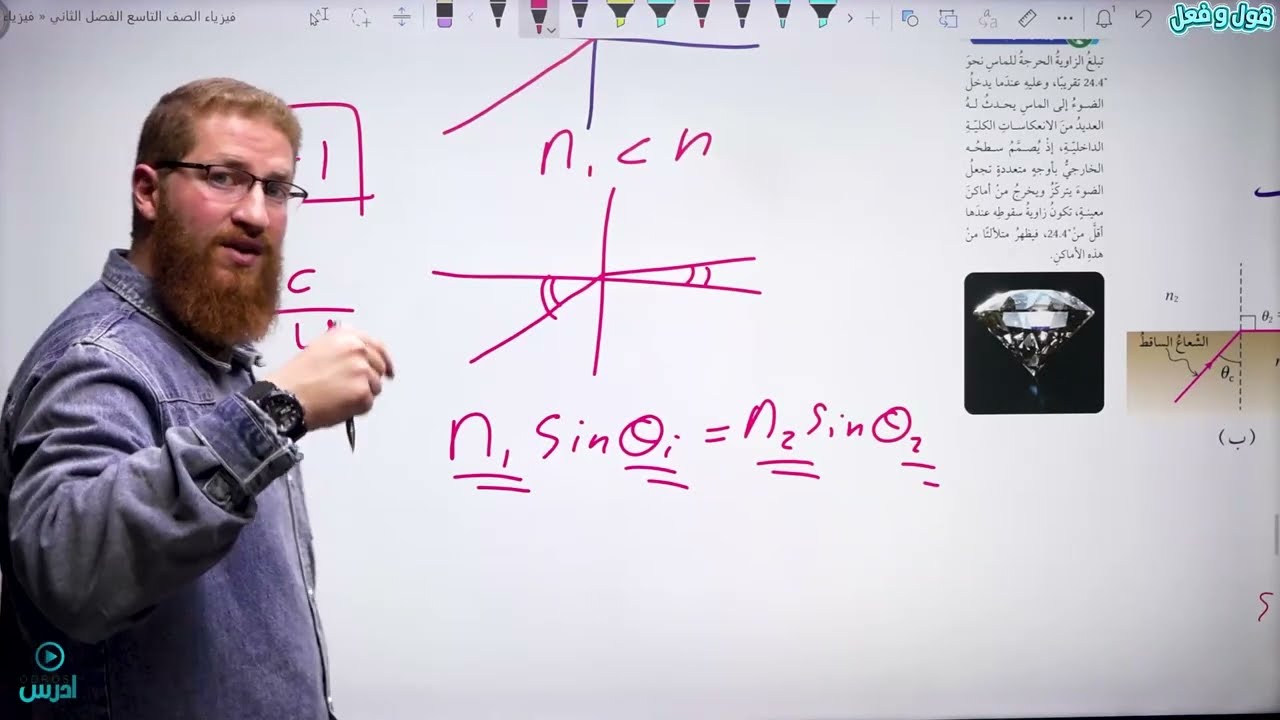 فيزياء الصف التاسع الفصل الثاني « فيزياء
قول و فعل
تبلغُ الزاويةُ الحرجةُ للماسِ نحوَ
24.4° تقريبًا، وعليهِ عندَما يدخلُ
الضوءُ إلى الماسِ يحدثُ لهُ
العديدُ منَ الانعكاساتِ الكليّةِ
الداخليّةِ، إذْ يُصمَّمُ سطحُه
الخارجيُّ بأوجهٍ متعددةٍ تجعلُ
الضوءَ يتركّزُ ويخرجُ منْ أماكنَ
معينةٍ، تكونُ زاويةُ سقوطِه عندَها
أقلَّ منْ 24.4°، فيظهرُ متلألئًا منْ
هذهِ الأماكنِ.
1
n₁ < n
c
n₁ sinθᵢ = n₂ sinθ₂
n₂
θ₂ =
الشّعاعُ الساقطُ
θc
(ب)
ODROS
ادرس